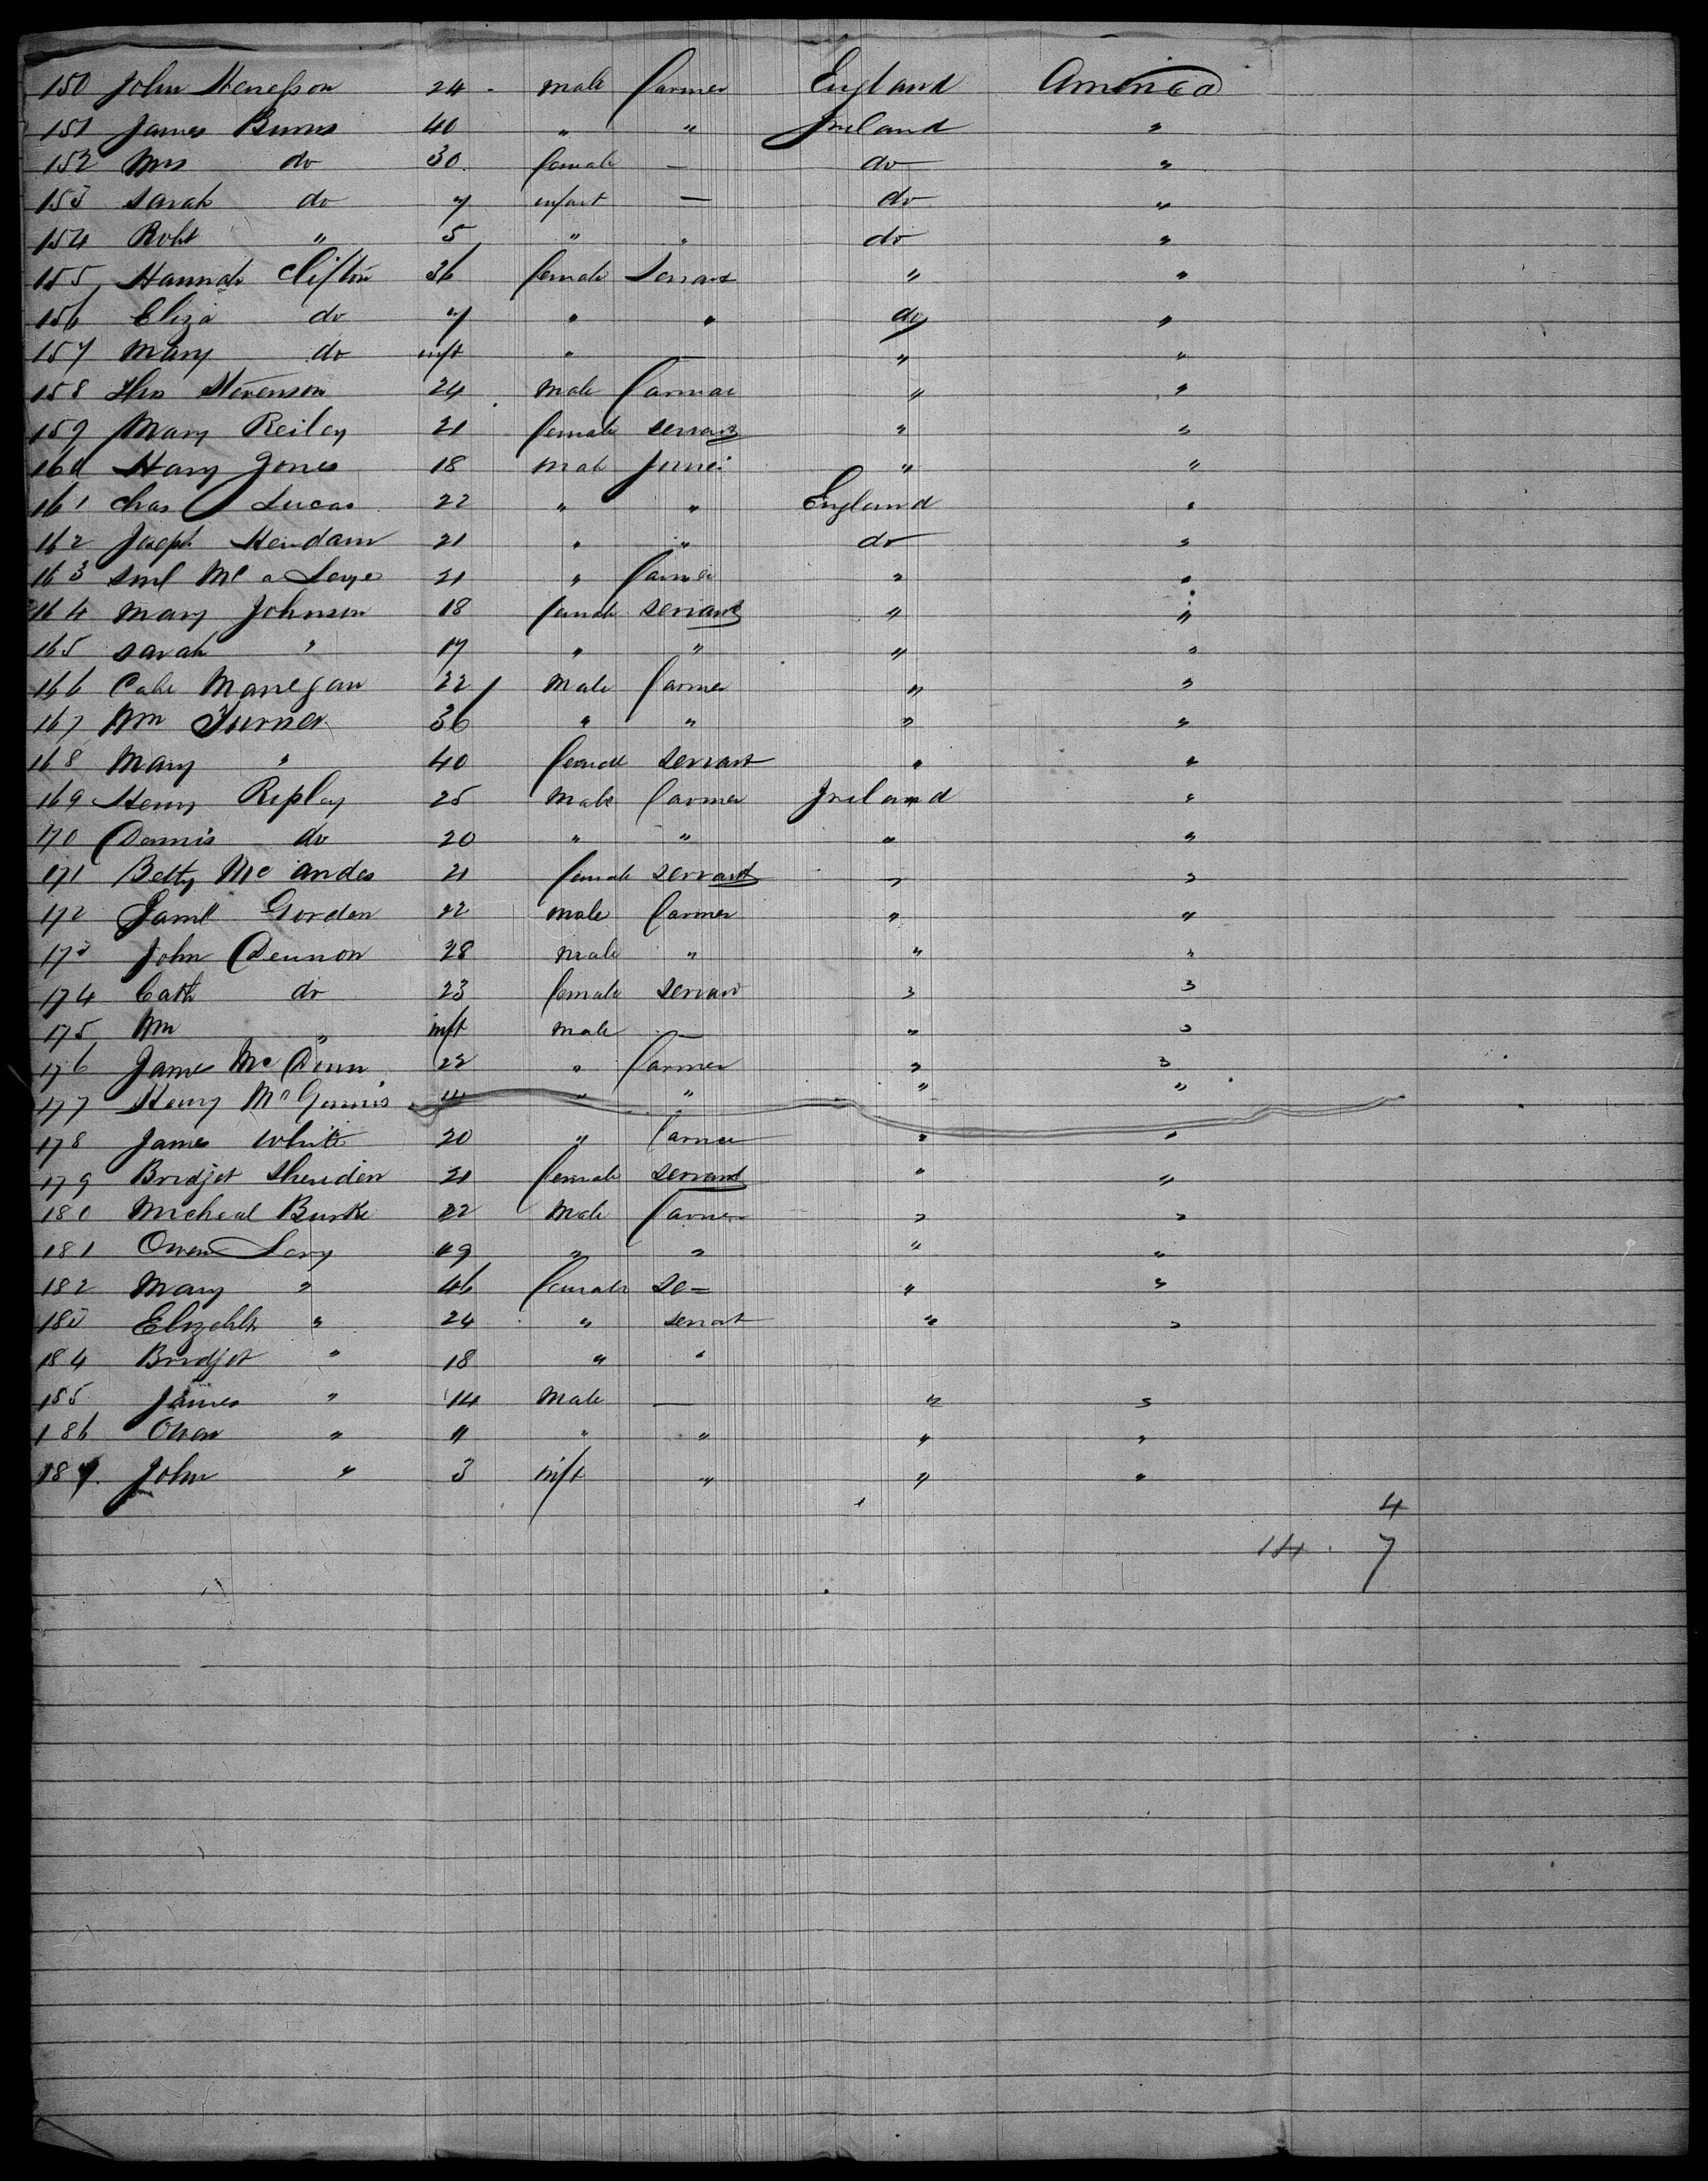 150 John Stenefson 24 - male farmer England America
151 James Burns 40 " " Ireland "
152 Mrs do 30. female — do "
153 Sarah do 7 infant — do "
154 Robt " 5 " " do "
155 Hannah Clifton 36 female Servant " "
156 Eliza do 7 " " do "
157 Mary do inft " — " "
158 Thos Stevenson 24 male farmer " "
159 Mary Reiley 21 female servant " "
160 Harry Jones 18 male " "
161 Chas Lucas 22 " " England "
162 Joseph 21 " " do "
163 Saml Mc 21 " farmer " "
164 Mary Johnson 18 female servant " "
165 Sarah " 17 " " " "
166 Manegan 22 male farmer " "
167 Wm Turner 36 " " " "
168 Mary " 40 female servant " "
169 Henry Ripley 25 male farmer Ireland "
170 Dennis do 20 " " " "
171 Betty Mc andes 21 female servant " "
172 Saml Gorden 22 male farmer " "
173 John Dennon 28 male " " "
174 Cath do 23 female servant " "
175 Wm " inft male — " "
176 James Mc Donn 22 " farmer " "
177 Henry McGinnis " " " "
178 James White 20 " farmer " "
179 Bridjet Sheriden 21 female servant " "
180 Micheal Burke 22 male farmer " "
181 Owen Lavy 49 " " " "
182 Mary " 46 female se- " "
183 Elizabth " 24 " servat " "
184 Bridjet " 18 " "
185 James " 14 male — " "
186 Owen " 11 " " " "
187. John " 3 inft " " "
4
14 . 7